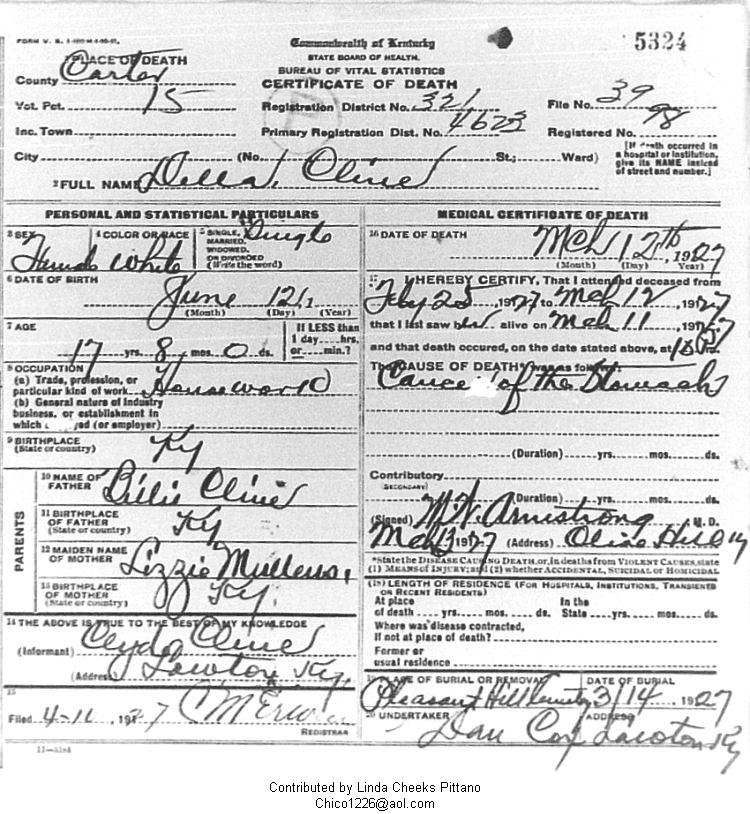 FORM V. S.
Commonwealth of Kentucky
5324
STATE BOARD OF HEALTH.
BUREAU OF VITAL STATISTICS
CERTIFICATE OF DEATH
PLACE OF DEATH
County Carter
Vot. Pct. 15
Registration District No. 321
File No. 39
Inc. Town
Primary Registration Dist. No. 4623
Registered No. 98
City (No. St.; Ward)
[If death occurred in a hospital or institution, give its NAME instead of street and number.]
2 FULL NAME Della Cline
PERSONAL AND STATISTICAL PARTICULARS
3 SEX Female
4 COLOR OR RACE White
5 SINGLE, MARRIED, WIDOWED, OR DIVORCED (Write the word) Single
6 DATE OF BIRTH
June 12
(Month) (Day) (Year)
7 AGE
17 yrs. 8 mos. 0 ds.
If LESS than 1 day.....hrs. or.....min.?
8 OCCUPATION
(a) Trade, profession, or
particular kind of work Housework
(b) General nature of industry
business, or establishment in
which (or employer)
9 BIRTHPLACE
(State or country) Ky
PARENTS
10 NAME OF
FATHER Cline
11 BIRTHPLACE
OF FATHER
(State or country) Ky
12 MAIDEN NAME
OF MOTHER Lizzie Mullens
13 BIRTHPLACE
OF MOTHER
(State or country) Ky.
14 THE ABOVE IS TRUE TO THE BEST OF MY KNOWLEDGE
(Informant) Clyde Cline
(Address) Lawton Ky.
15
Filed 4-11, 1927
REGISTRAR
11-3184
MEDICAL CERTIFICATE OF DEATH
16 DATE OF DEATH
Mch 12th, 1927
(Month) (Day) (Year)
17 I HEREBY CERTIFY, That I attended deceased from
Feby 25, 1927 to Mch 12, 1927
that I last saw her alive on Mch 11, 1927
and that death occured, on the date stated above, at
The CAUSE OF DEATH* was as follows:
Cancer of the Stomach
(Duration) yrs. mos. ds.
Contributory
(SECONDARY)
(Duration) yrs. mos. ds.
(Signed) M.W. Armstrong M. D.
Mch 13 1927 (Address) Olive Hill Ky
*State the DISEASE CAUSING DEATH, or, in deaths from VIOLENT CAUSES, state
(1) MEANS OF INJURY; and (2) whether ACCIDENTAL, SUICIDAL or HOMICIDAL
(18) LENGTH OF RESIDENCE (FOR HOSPITALS, INSTITUTIONS, TRANSIENTS
OR RECENT RESIDENTS)
At place In the
of death yrs. mos. ds. State yrs. mos. ds.
Where was disease contracted,
if not at place of death?
Former or
usual residence
19 PLACE OF BURIAL OR REMOVAL
Pleasant Hill Cemetery
DATE OF BURIAL
3/14 1927
20 UNDERTAKER
Dan Cox
ADDRESS
Lawton Ky
Contributed by Linda Cheeks Pittano
Chico1226@aol.com